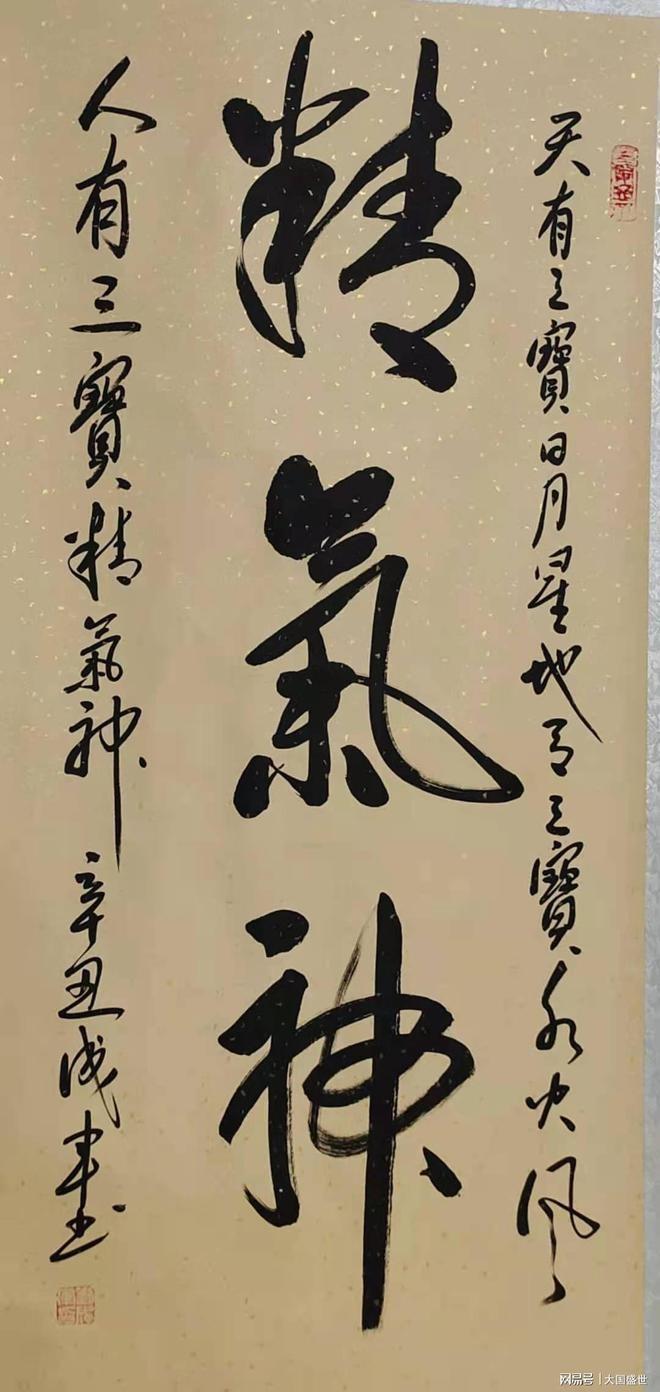 天有三寶日月星地有三寶水火風
精氣神
人有三寶精氣神
辛丑成軍書
网易号 | 大国盛世